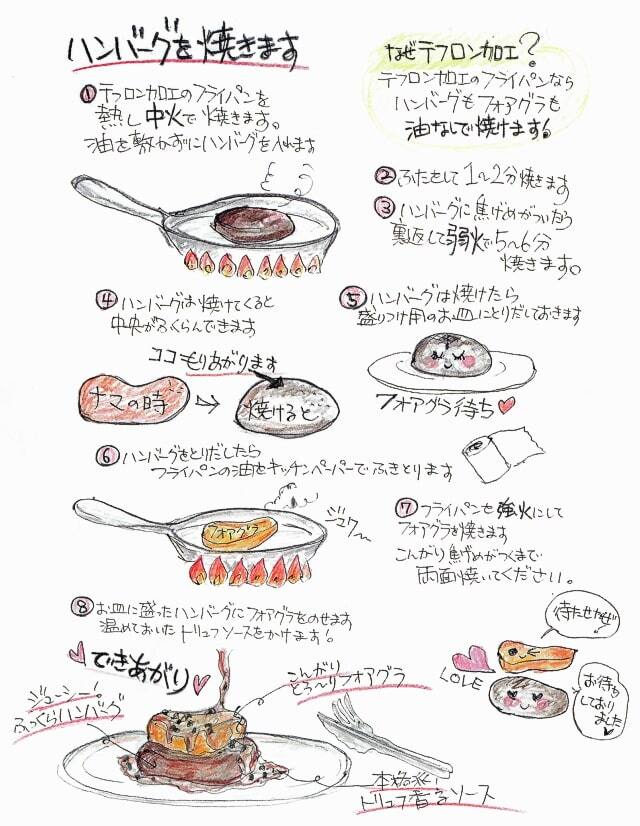 ハンバーグを焼きます
①テフロン加工のフライパンを
熱し中火で焼きます。
油を敷かずにハンバーグを入れます
なぜテフロン加工?
テフロン加工のフライパンなら
ハンバーグもフォアグラも
油なしで焼けます!
②ふたをして1〜2分焼きます
③ハンバーグに焦げめがついたら
裏返して弱火で5〜6分
焼きます。
④ハンバーグは焼けてくると
中央がふくらんできます
ココもりあがります
ナマの時
焼けると
⑤ハンバーグは焼けたら
盛りつけ用のお皿にとりだしておきます
フォアグラ待ち
⑥ハンバーグをとりだしたら
フライパンの油をキッチンペーパーでふきとります
フォアグラ
ジュワ〜
⑦フライパンを強火にして
フォアグラを焼きます
こんがり焦げめがつくまで
両面焼いてください。
⑧お皿に盛ったハンバーグにフォアグラをのせます
温めておいたトリュフソースをかけます!
待たせたぜ!
LOVE
お待ち
しており
ました
できあがり
ジューシー!
ふっくらハンバーグ
こんがり
とろ〜りフォアグラ
本格派!
トリュフ香るソース